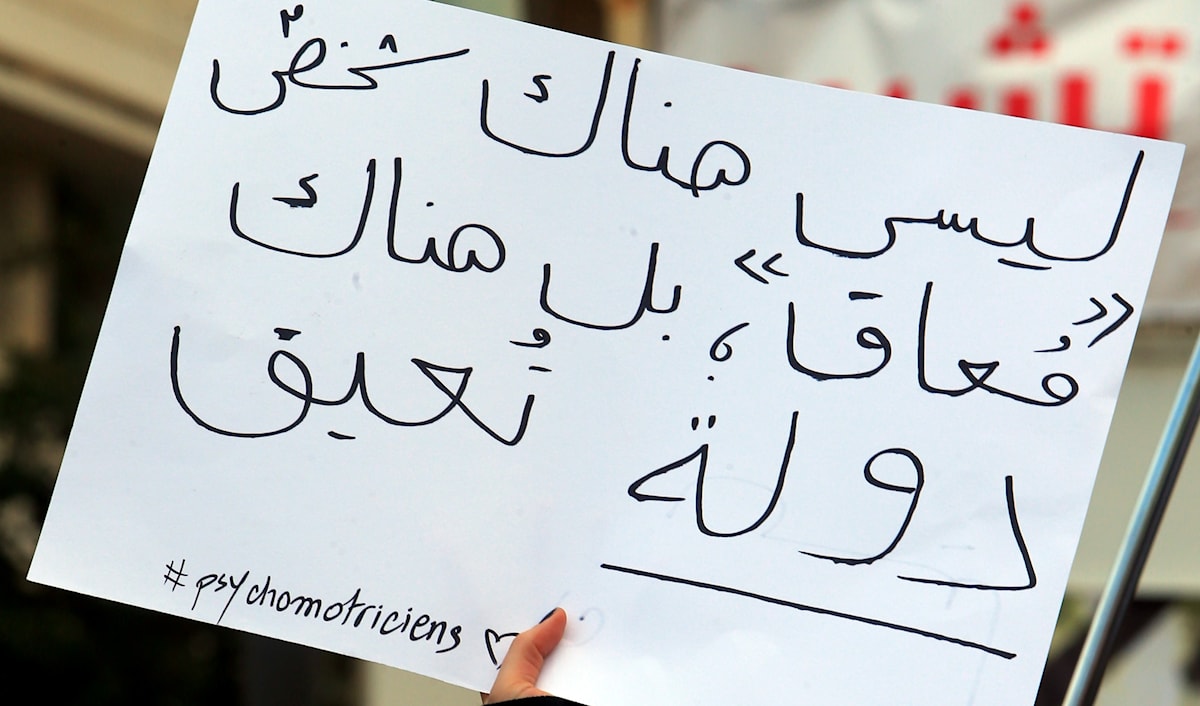 ليس هناك شخصٌ
«مُعاق»، بل هناك
دولة تُعيق
#psychomotriciens